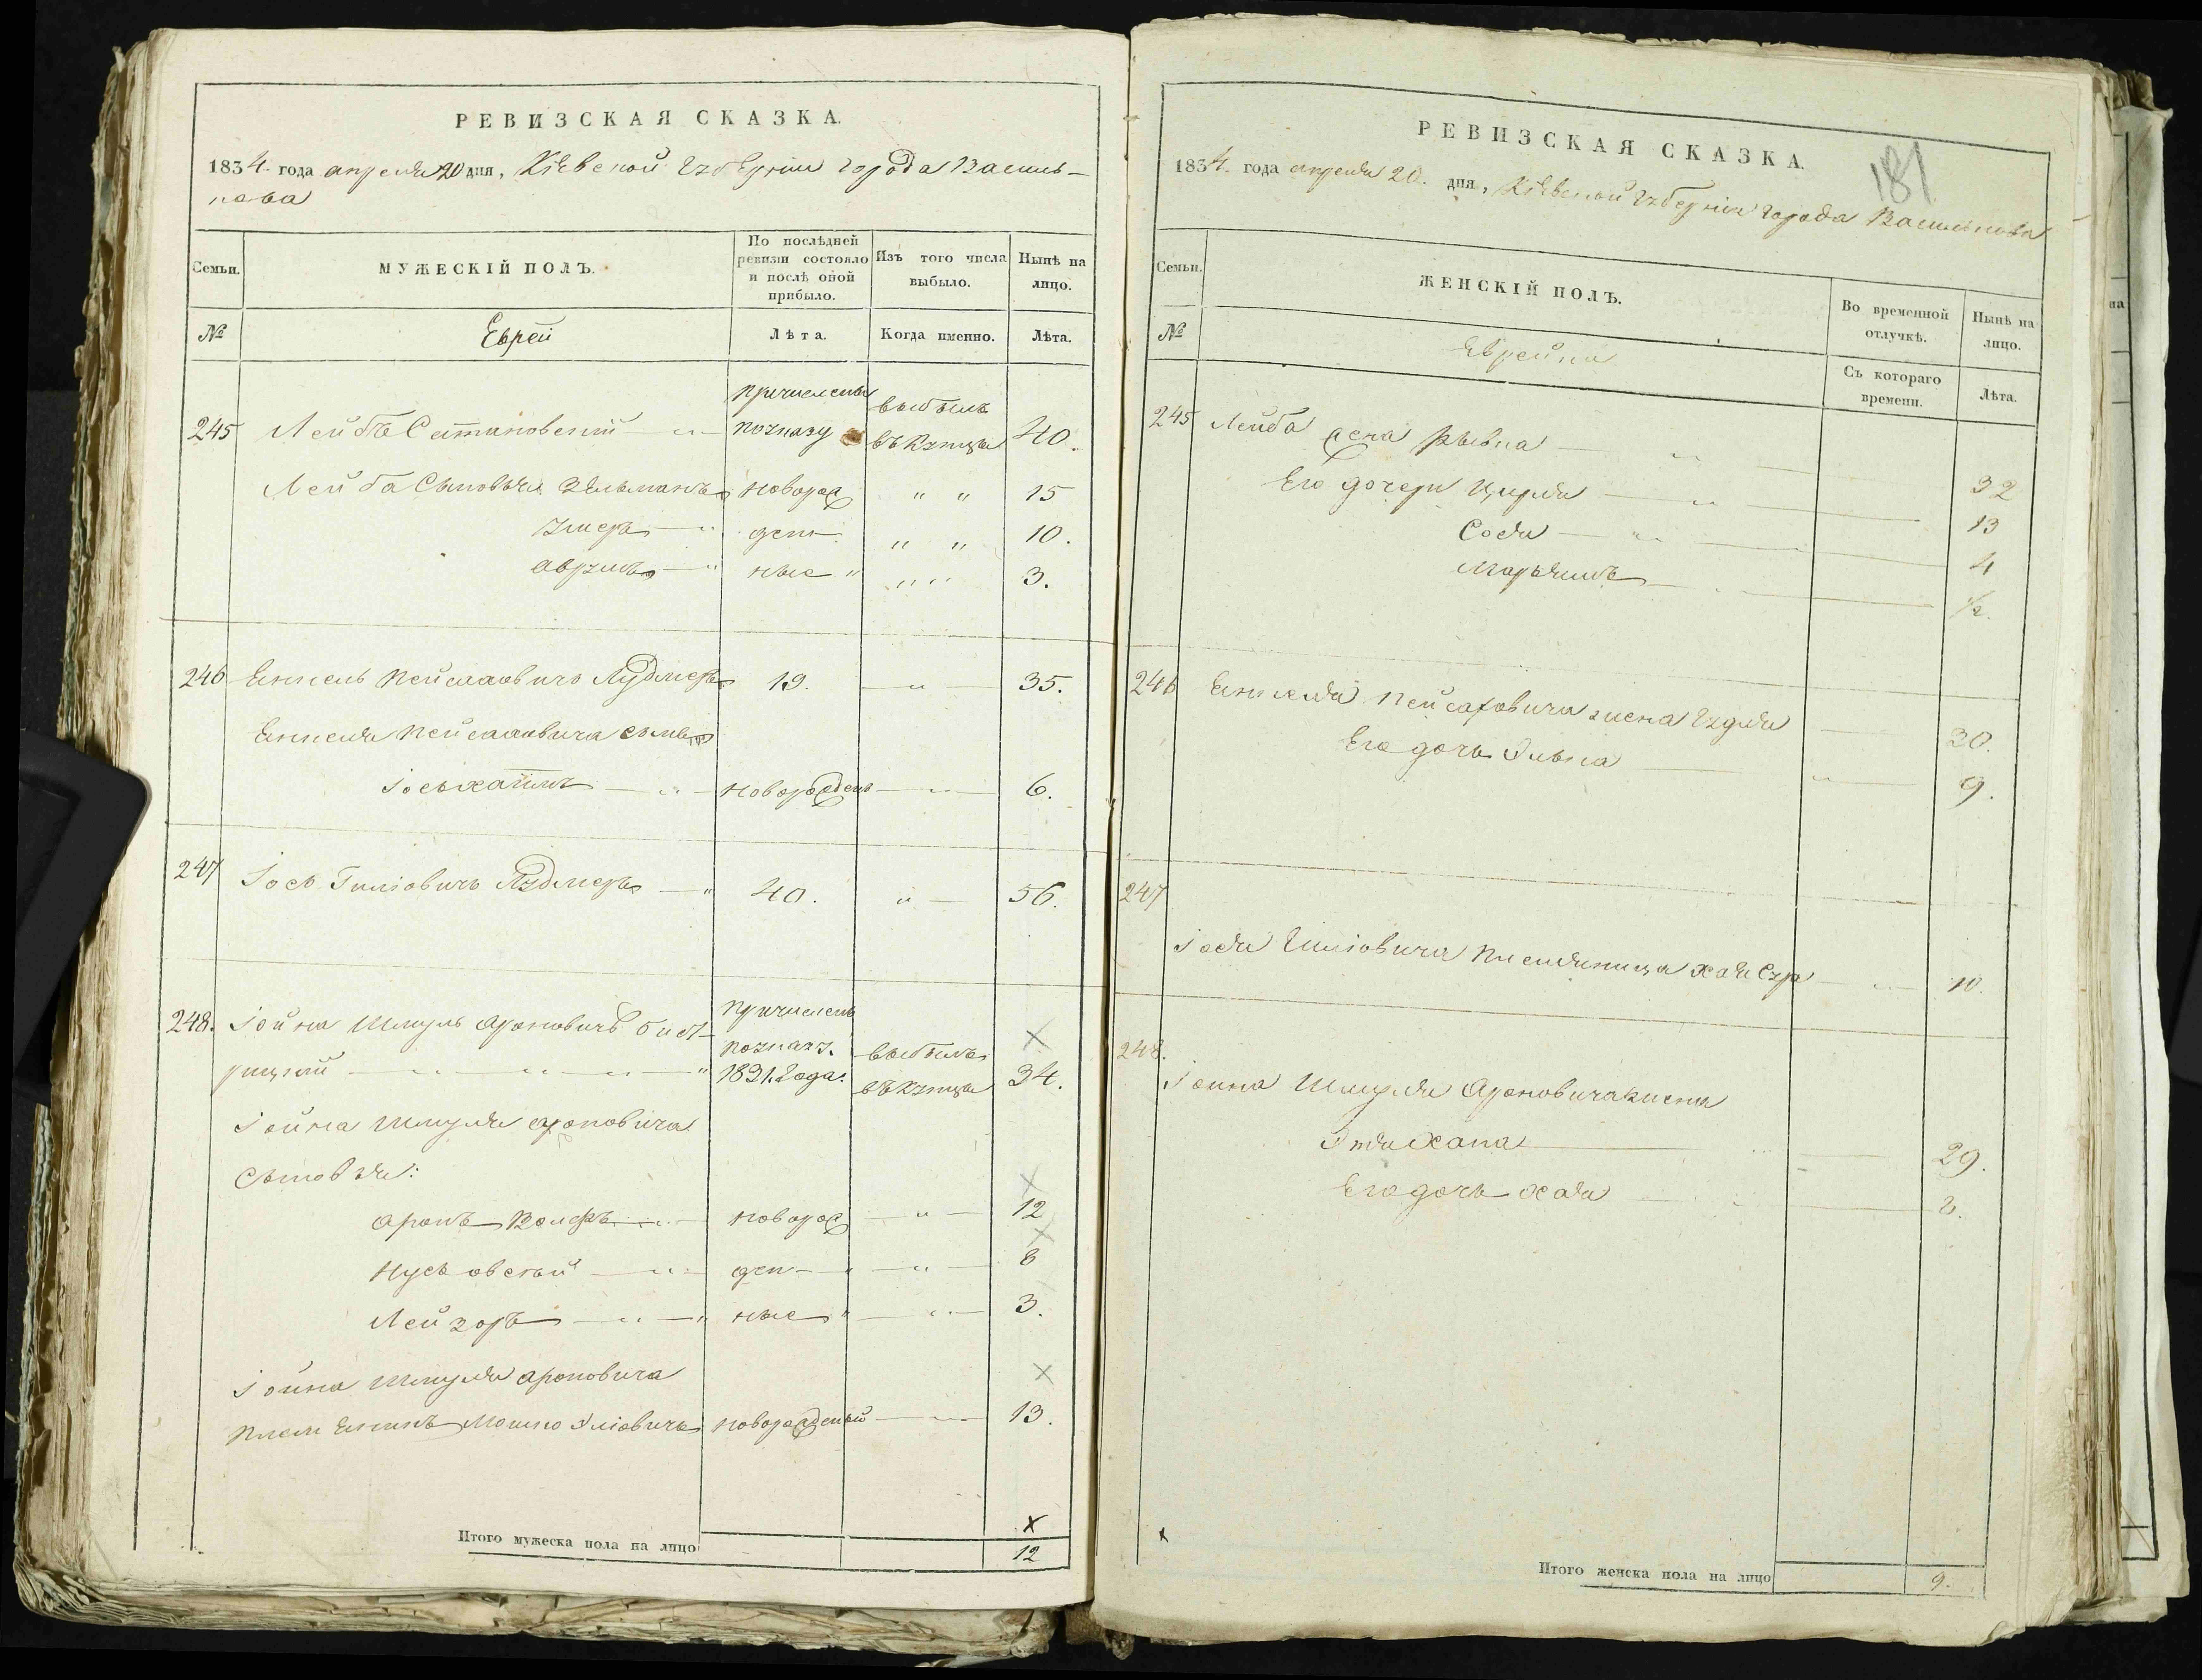 РЕВИЗСКАЯ СКАЗКА.
1834. года апреля 20 дня, Кіевской губерніи города Василь-
кова
Семьи.
МУЖЕСКІЙ ПОЛЪ.
По послѣдней ревизіи состояло и послѣ оной прибыло.
Изъ того числа выбыло.
Нынѣ на лицо.
№
Еврей
Лѣта.
Когда именно.
Лѣта.
причисленъ выбылъ
245 Лейбъ Сатановскій по указу въ купцы 40.
Лейба Сыновья Зельманъ новорож " " 15
денъ " " 10.
Аврумъ ные " " " 3.
246 Енкель Пейсаховичъ Лудмеръ 19. " 35.
Енкеля Пейсаховича сынъ
Іось Хаимъ " новорожденъ " 6.
247 Іось Гиліовичъ Лудмеръ " 40. " 56.
причисленъ
248. Іойна Шмуль Ароновичъ Бист- по указу. выбылъ
рицкій 1831. года. въ купцы 34.
Іойна Шмуля Ароновича
Сыновья:
Аронъ Волфъ новорож " 12
ден " " 8
Лейзоръ " ные " " 3.
Іойна Шмуля Ароновича
племеникъ Мошко Эліовичъ новорожденый " 13.
Х
Итого мужеска пола на лицо 12
РЕВИЗСКАЯ СКАЗКА.
181
1834. года апреля 20. дня, Кіевской губерніи города Василькова
Семьи.
ЖЕНСКІЙ ПОЛЪ.
Во временной отлучкѣ.
Нынѣ на лицо.
№
Еврейка
Съ котораго времени.
Лѣта.
245 Лейба жена Рывка " 32
Его дочери Цирля " 13
Сося " 4
Марьямъ " 1/2.
246 Енкеля Пейсаховича жена 30.
Его дочь Элька " 9.
247
Іося Гиліовича племяница Хая Сура " 10.
248.
Іойна Шмуля Ароновича жена
Этя Хана 29.
Его дочь Хая " 2.
Итого женска пола на лицо 9.